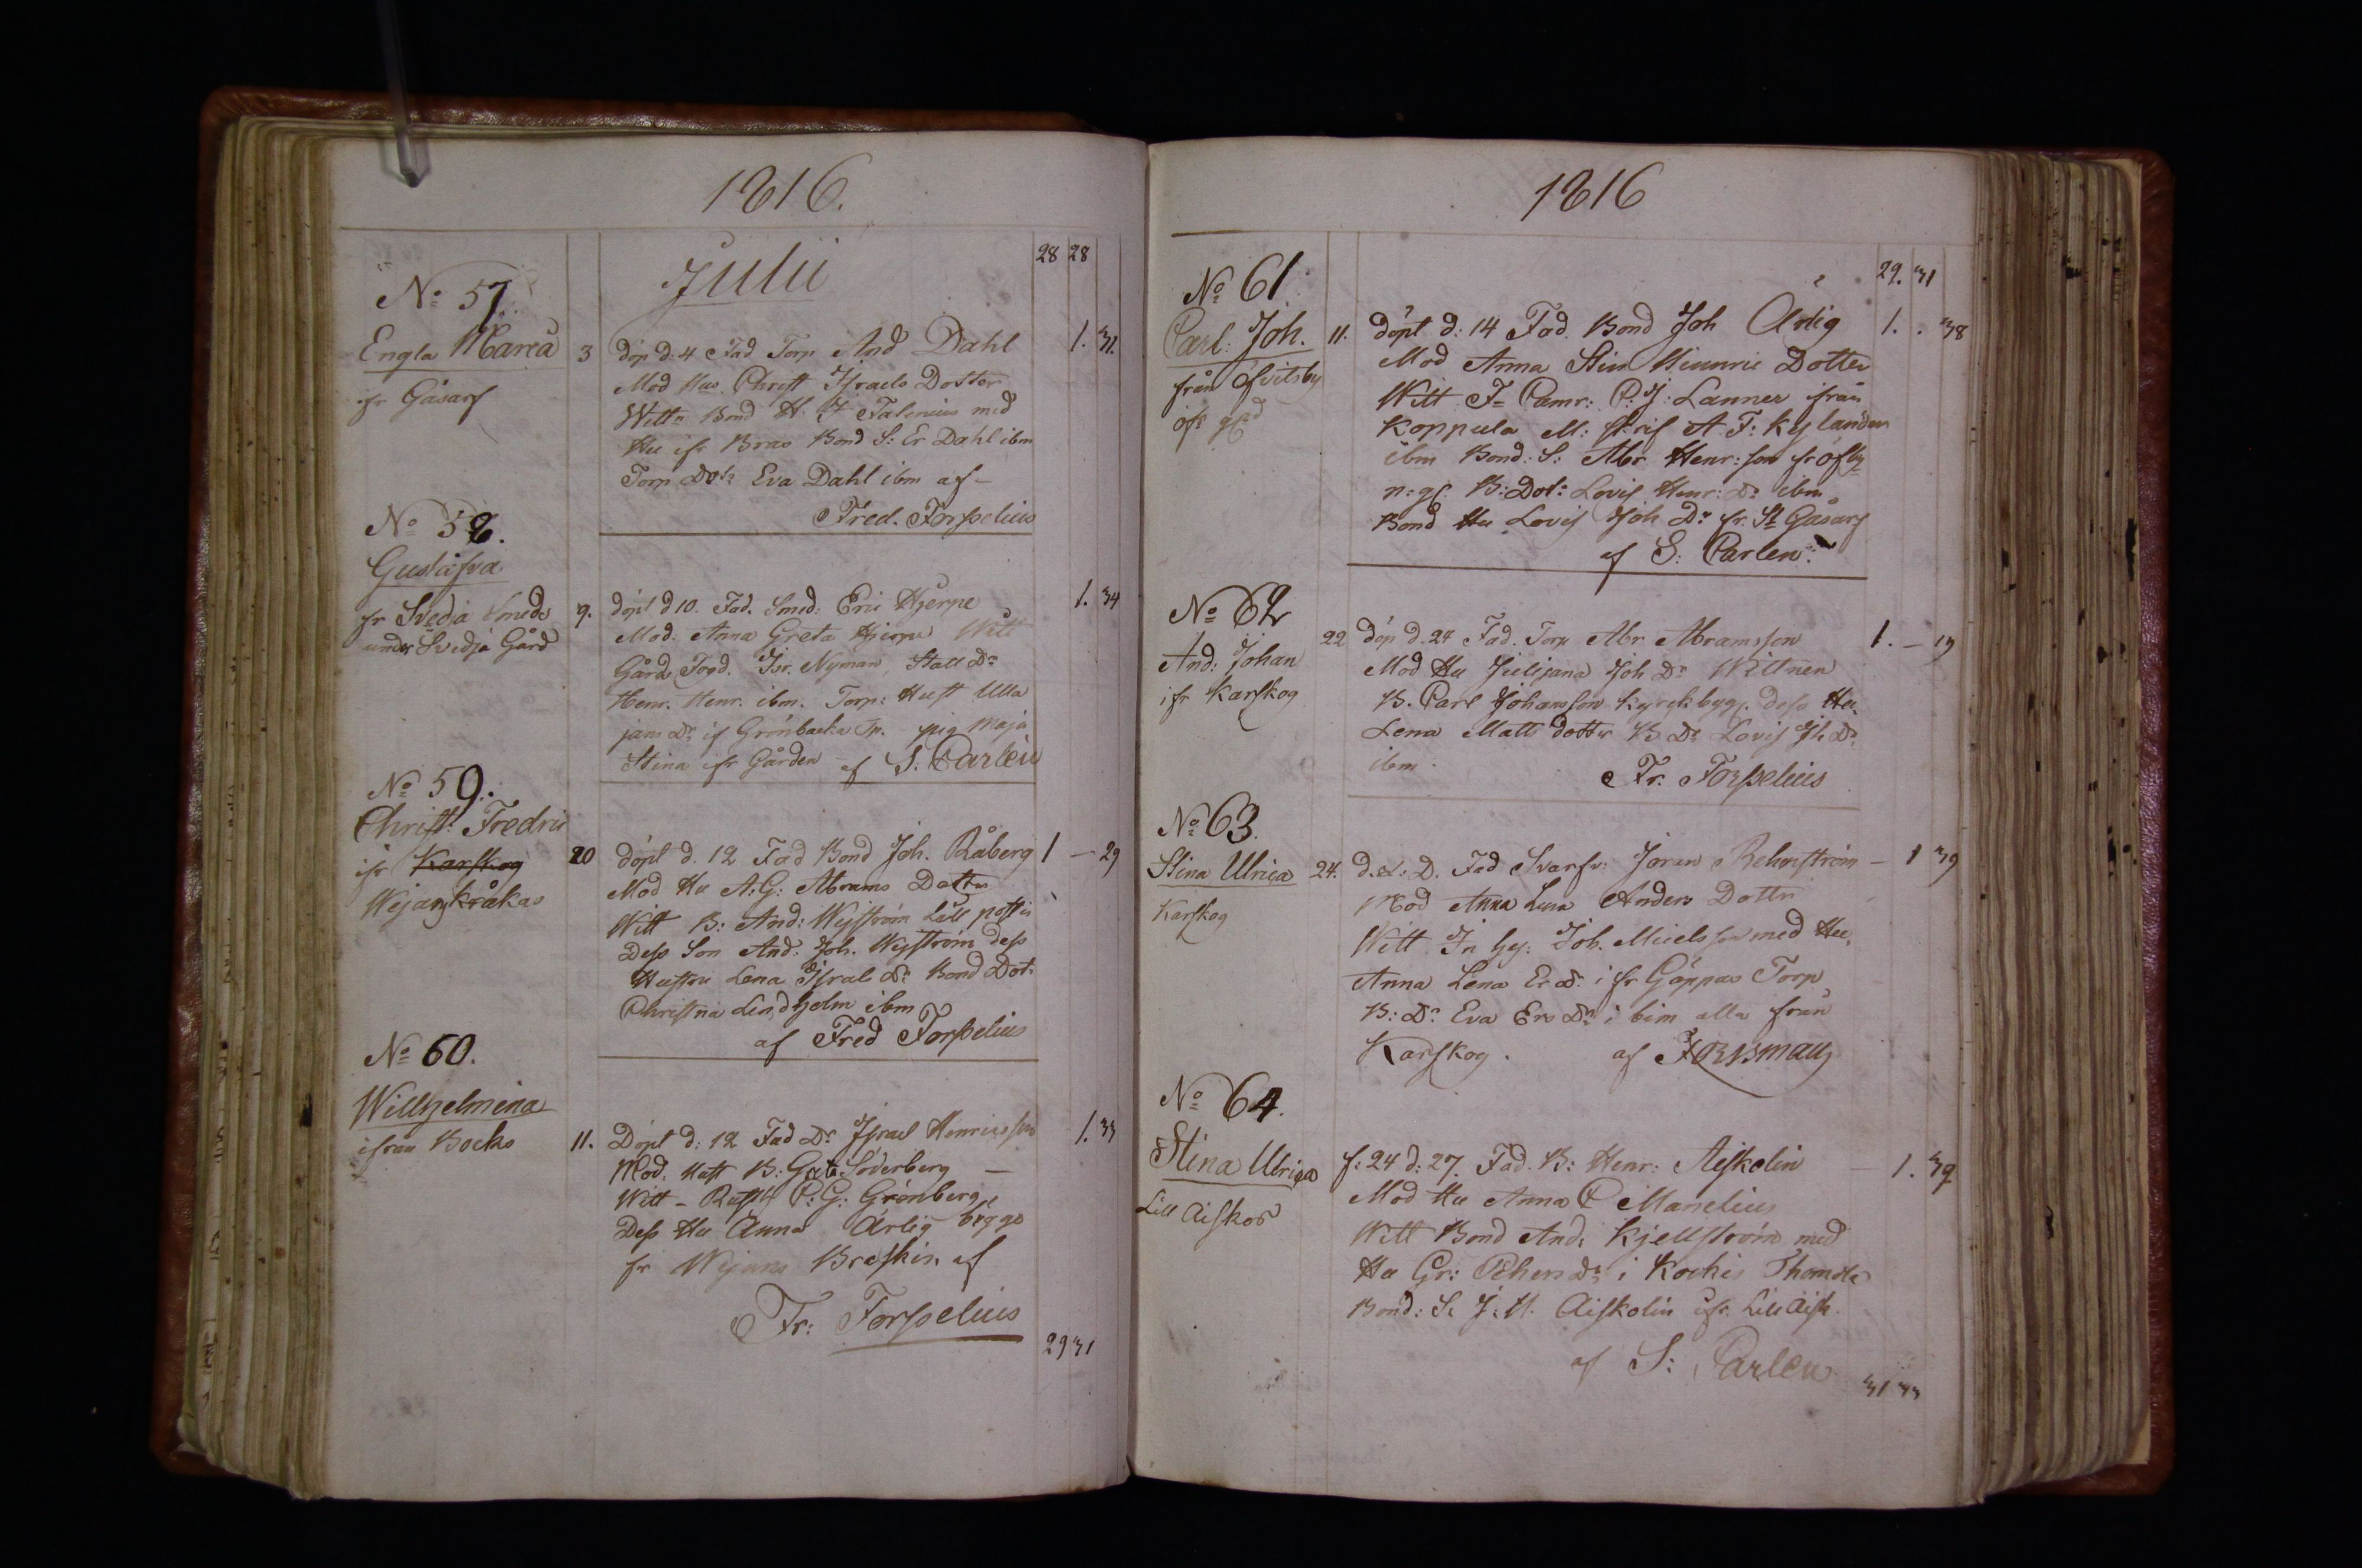 1816.
Julii
28 28
No 57.
Engla Maria
ifr Gåsarf
3 döp d. 4 Fad Torp And Dahl 1. 31.
Mod Hus. Christ Israels Dotter
Wittn Bond H. J Falenius med
Hu ifr Bras Bond S: Er Dahl ibm
Torp Dotr Eva Dahl ibm af
Fred. Forsselius
No 58.
Gustafva
fr Svedja Smeds
under Svedja Gård
9. döpt d 10. Fad. Smed: Eric Hjerpe 1. 34
Mod. Anna Greta Hjerpe Witt
Gårds Fogd. Isr. Nyman, Stall Dr
Henr. Henr. ibm. Torp: Hust Ulla
jans Dr if Grönbacka Tp. pig Maja
Stina ifr Gården af S: Carlen
No 59.
Christ: Fredric
ifr Karskog
Wejans kråkas
10 döpt d. 12 Fad Bond Joh. Råberg 1 — 29
Mod Hu A: G: Abrams Dotter
Witt B: And: Wejström Lill postis
Dess Son And. Joh. Wejström dess
Hustru Lena Israel Dr Bond Dotr
Christina Lindholm ibm
af Fred Forsselius
No 60.
Willhelmina
ifrån Bocks
11. Döpt d: 12 Fad Dr Israel Henricsson 1. 33
Mod. Hust B: Gata Söderberg —
Witt - Rusth P: G: Grönberg
Dess Hu Anna Ärlig
fr Wejans Braskin af
Fr: Forsselius
29 31
1816
29. 31
No 61
Carl: Joh.
från Ofvitsby
öfr gd
11. döpt d: 14 Fad. Bond Joh Ärlig 1. . 38
Mod Anna Stin Hinric Dotter
Witt F= Camr: P: J: Lanner ifrån
Koppula M: skrif A. F: Kylander
ibm Bond: S: Abr Henr: son fr Öfby
n: gd. B: Dotr Lovis Henr: Dr ibm
Bond Hu Lovis Joh Dr fr. St Gåsarf
af S: Carlen:
No 62
And: Johan
ifr Karskog
22 döp d. 24 Fad. Torp Abr Abramsson 1. — 19
Mod Hu Julijana Joh Dr Wittnen
B. Carl Johansson Kyrckbyg. dess Hu
Lena Matts dotter B Dr Lovis Joh Dr
ibm.
Fr. Forsselius
No 63.
Stina Ulrica
Karskog
24. d. s. D. Fad Svarfv: Joran Rehnström — 1 39
Mod Anna Lena Anders Dotter
Witt Joh. Micels son med Hu
Anna Lena Er Dr ifr Göppas Torp
B: Dr Eva Ers Dr ibim alla från
Karskog. af Forsman
No 64.
Stina Ulrica
Lill Aiskos
f: 24 d: 27. Fad. B: Henr: Aiskolin — 1. 39
Mod Hu Anna C Manelius
Witt Bond And: Kjellström med
Hu Gr: Pehers Dr i Kockis Thomola
Bond: S: J: H. Aiskolin ifr. Lill Aisk.
af S: Carlen
31 33